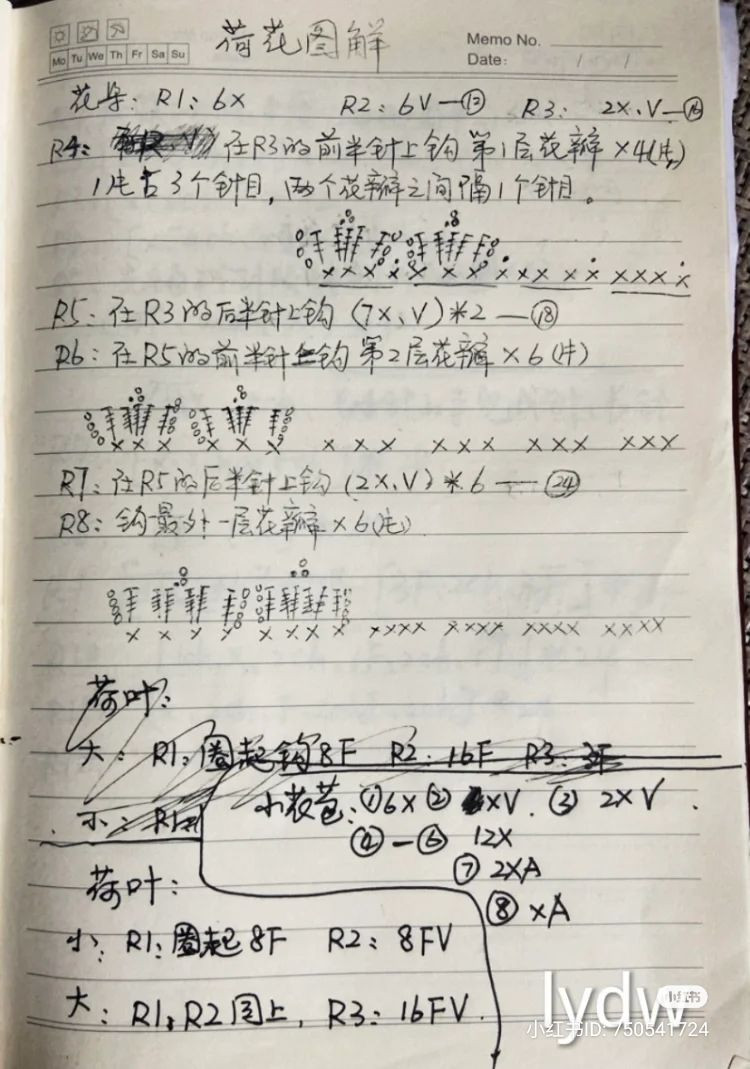 荷花图解
Memo No.
Mo Tu We Th Fr Sa Su
Date: / /
花朵: R1: 6X R2: 6V—⑫ R3: 2X、V—⑯
R4: 在R3的前半针上钩 第1层花瓣 ×4(片)
1片占3个针目, 两个花瓣之间隔1个针目。
× × × × · × × × · × × × × · × × × ·
R5: 在R3的后半针上钩 (7X、V)*2 —⑱
R6: 在R5的前半针上钩 第2层花瓣 ×6(片)
× × × × × × × × × × × × × × × × × ×
R7: 在R5的后半针上钩 (2X、V)*6 —㉔
R8: 钩最外一层花瓣 ×6(片)
× × × × × × × × ×××× ×××× ×××× ××××
荷叶:
大: R1: 圈起钩8F R2: 16F R3:
小: R1:
小花苞: ①6X ② XV. ③ 2XV.
④—⑥ 12X
⑦ 2XA
⑧ XA
荷叶:
小: R1: 圈起8F R2: 8FV
大: R1、R2同上, R3: 16FV.
lydw
小红书
小红书ID: 750541724